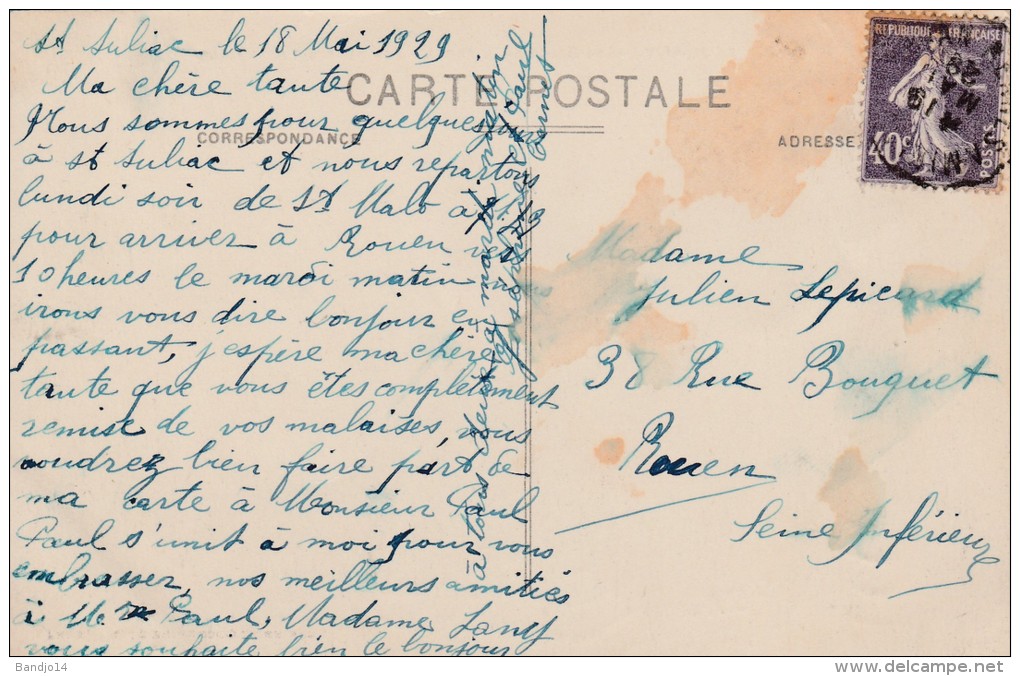 St Suliac le 18 Mai 1929
Ma chère tante
CARTE POSTALE
CORRESPONDANCE
ADRESSE
Nous sommes pour quelques jours
à St Suliac et nous repartons
lundi soir de St Malo à
pour arriver à Rouen vers
10 heures le mardi matin nous
irons vous dire bonjour en
passant, j'espère ma chère
tante que vous êtes complètement
remise de vos malaises, vous
voudrez bien faire part de
ma carte à Monsieur Paul
Paul s'unit à moi pour vous
embrasser, nos meilleurs amitiés
à Mr Paul, Madame Lany
vous souhaite bien le bonjour
à tous deux à mardi matin
Paul
Madame
Julien Lepicard
38 Rue Bouquet
Rouen
Seine Inférieure
REPUBLIQUE FRANCAISE
40c
POSTES
Bandjo14
www.delcampe.net